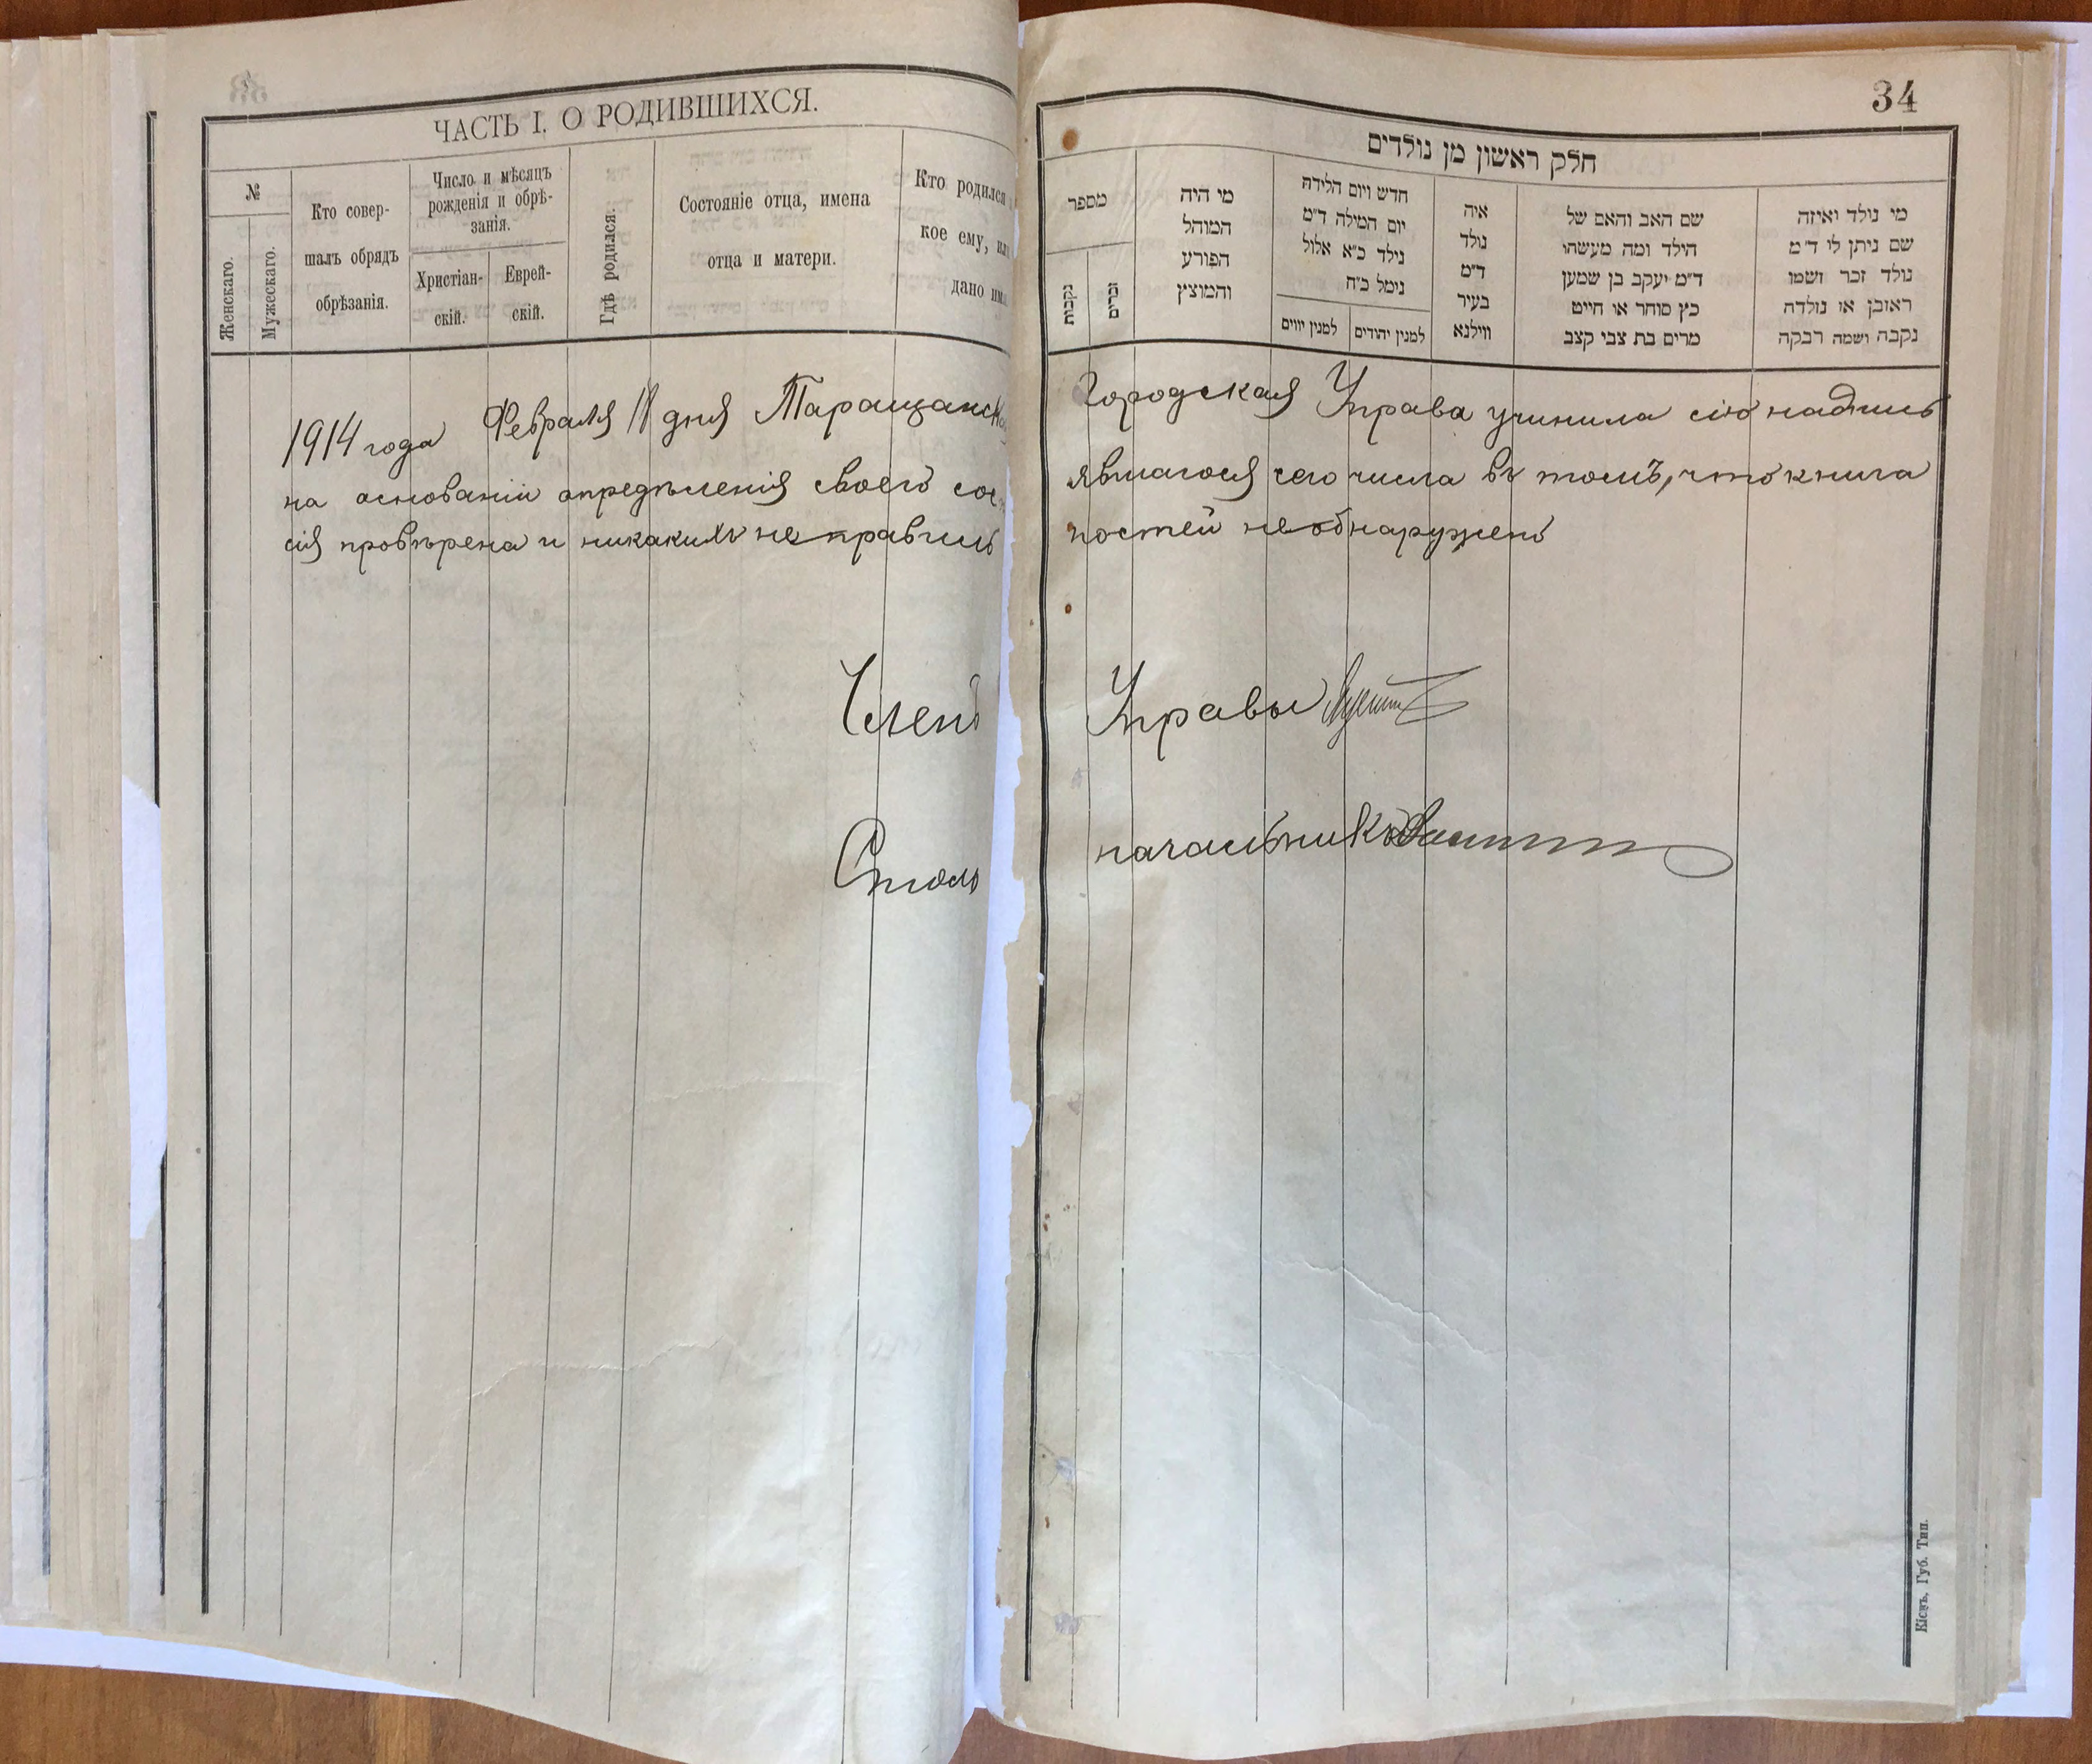 ЧАСТЬ I. О РОДИВШИХСЯ.
№
Женскаго.
Мужескаго.
Кто совер-
шалъ обрядъ
обрѣзанія.
Число и мѣсяцъ
рожденія и обрѣ-
занія.
Христіан-
скій.
Еврей-
скій.
Гдѣ родился.
Состояніе отца, имена
отца и матери.
Кто родился
кое ему, или
дано имя
34
חלק ראשון מן נולדים
מספר
נקבות
זכרים
מי היה
המוהל
הפורע
והמוצץ
חדש ויום הלידה
יום המילה ד״מ
נילד כ״א אלול
נימל כ״ח
למנין יווים
למנין יהודים
איה
נולד
ד״מ
בעיר
ווילנא
שם האב והאם של
הילד ומה מעשהו
ד״מ יעקב בן שמען
כץ סוחר או חייט
מרים בת צבי קצב
מי נולד ואיזה
שם ניתן לי ד״מ
נולד זכר ושמו
ראובן או נולדה
נקבה ושמה רבקה
1914 года Февраля 11 дня Таращанская Городская Управа учинила сію надпись
на основаніи опредѣленія своего сос явшагося сего числа въ томъ, что книга
сія провѣрена и никакихъ неправиль ностей не обнаружено
Членъ Управы
Столо начальникъ
Кіевъ, Губ. Тип.